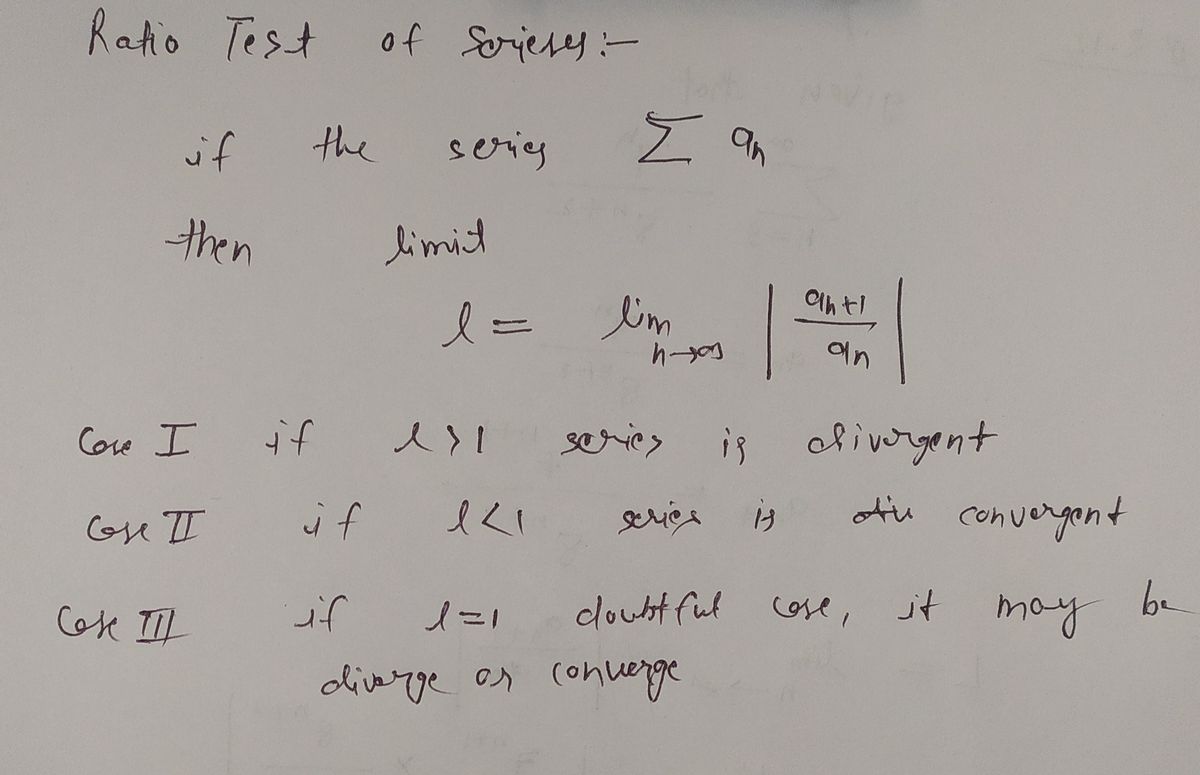 Ratio Test of Serieses:-
if the series ∑ an
then limit
l = lim n→∞ | an+1 / an |
Case I if l>1 series is divergent
Case II if l<1 series is convergent
Case III if l=1 doubtful case, it may be
diverge or converge